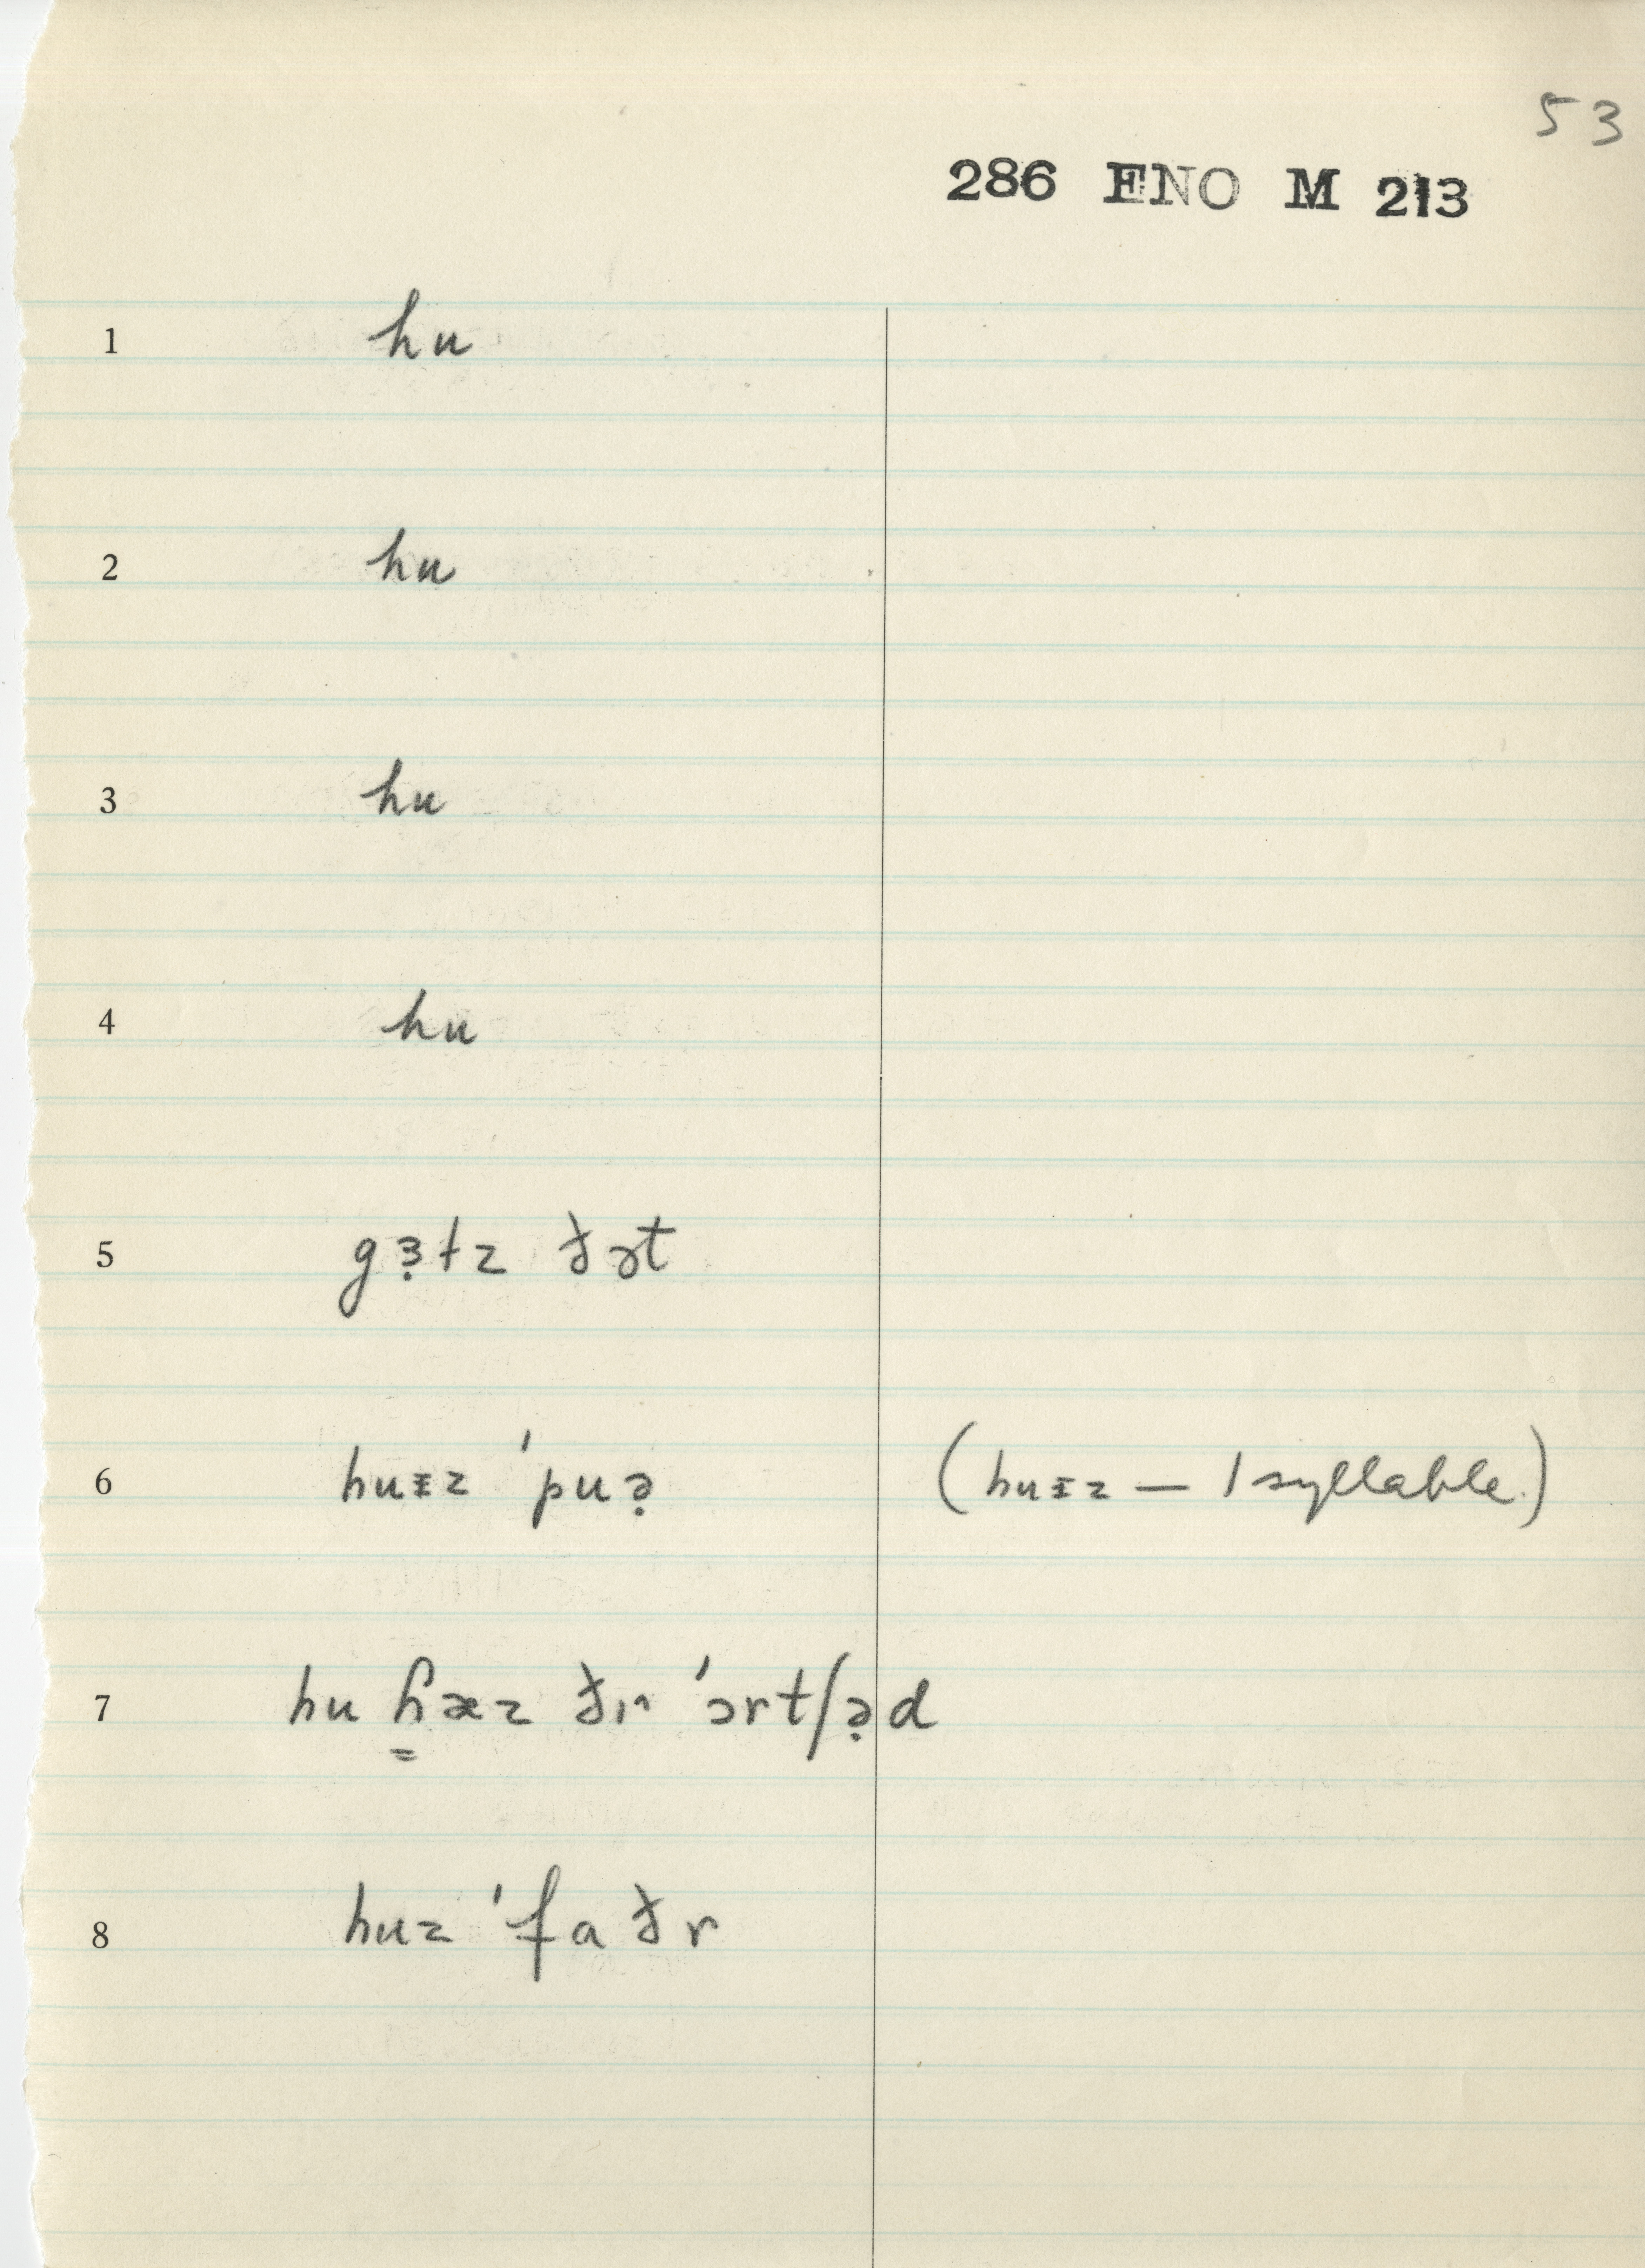 53
286 ENO M 213
1 hu
2 hu
3 hu
4 hu
5 gɜ̣ɫz ðət
6 huᵻz ˈpuə̣ (huᵻz — 1 syllable.)
7 hu ɦ̳æz ðɪˆ ˈɔrtʃə̣d
8 huz ˈfaðr